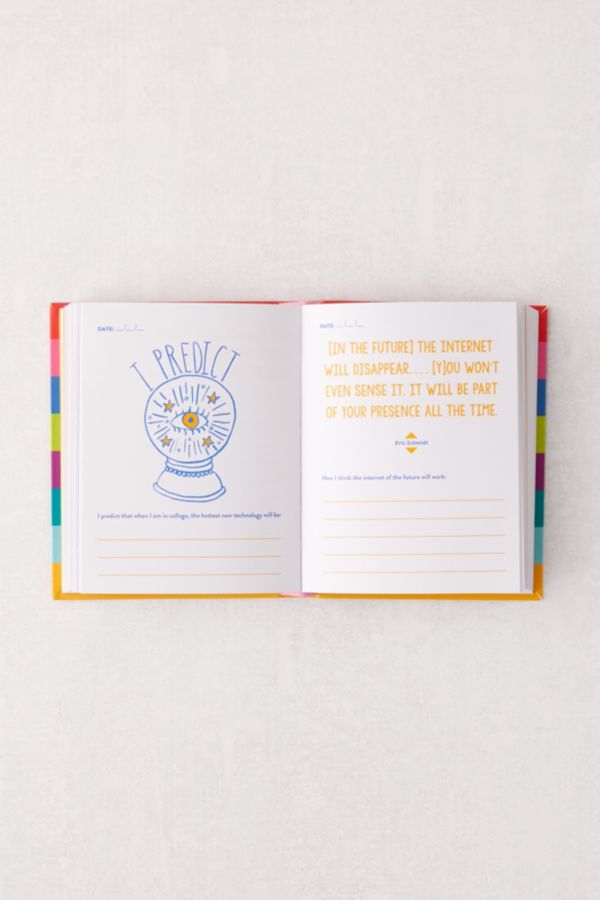 DATE: __/__/__
I PREDICT
I predict that when I am in college, the hottest new technology will be:
DATE: __/__/__
[IN THE FUTURE] THE INTERNET
WILL DISAPPEAR. . . . [Y]OU WON'T
EVEN SENSE IT. IT WILL BE PART
OF YOUR PRESENCE ALL THE TIME.
Eric Schmidt
How I think the internet of the future will work: